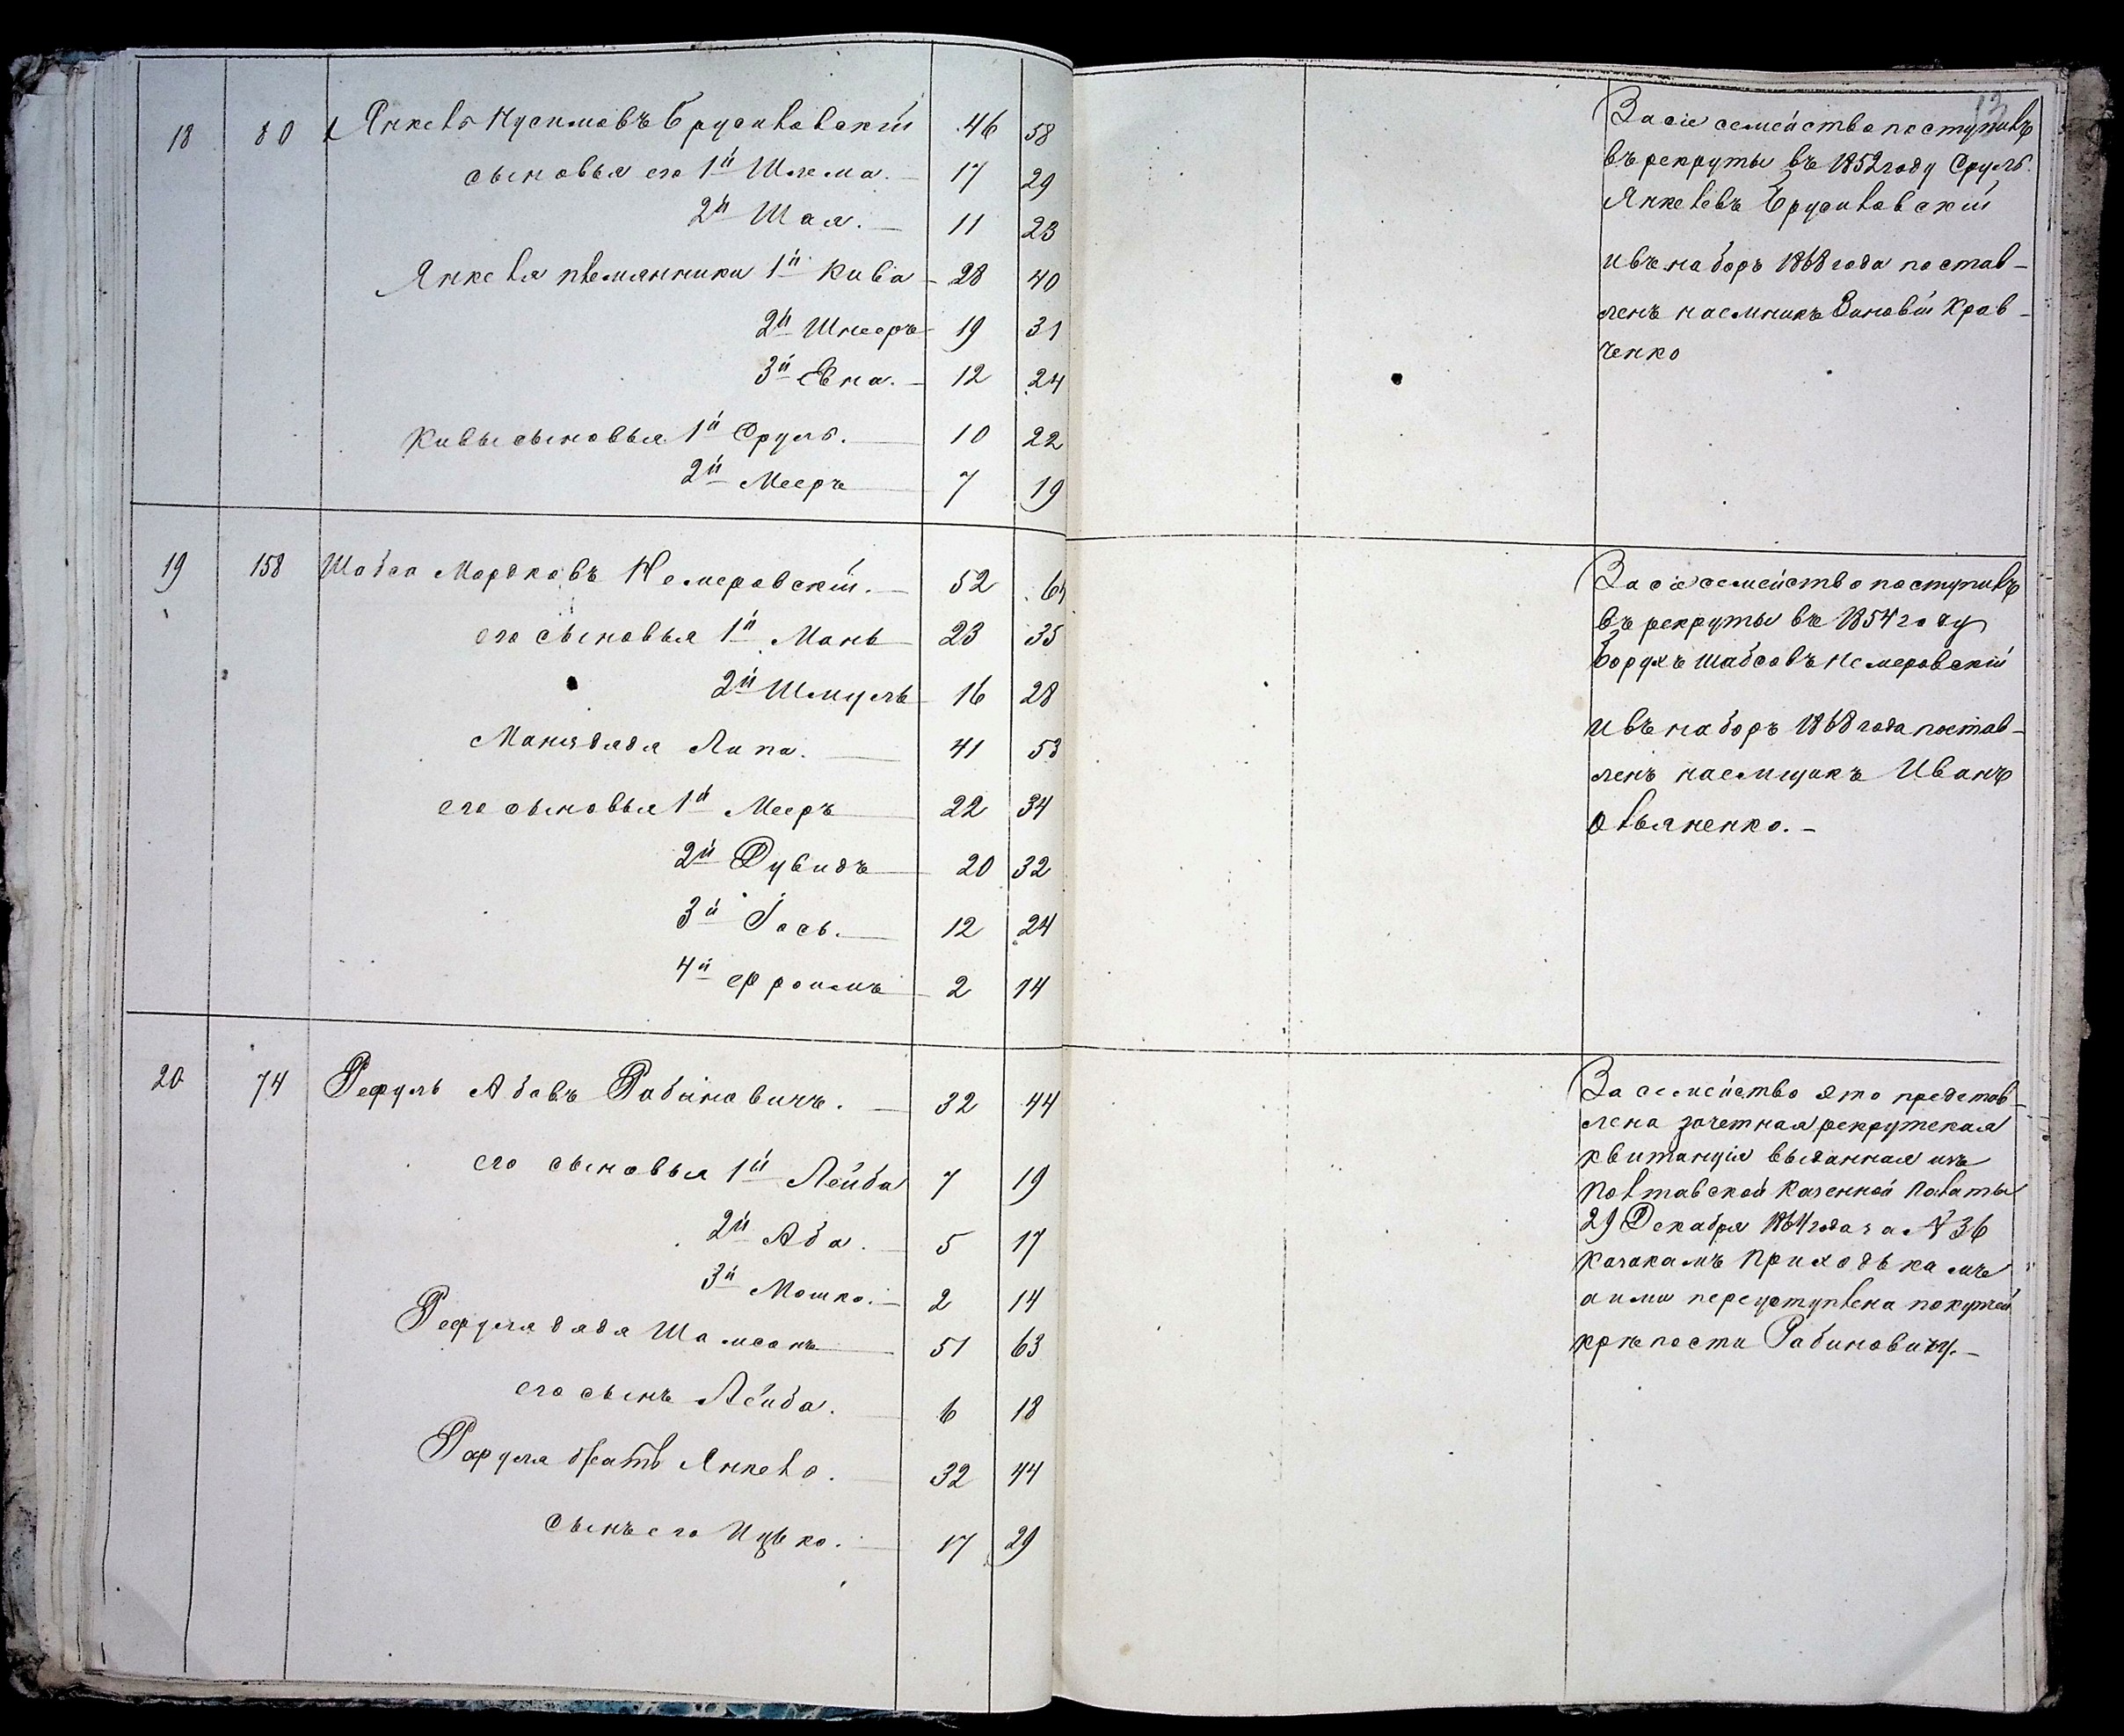 18 80 Янкель Нусимовъ Брусиловскій 46 58
сыновья его 1й Шлема. 17 29
2й Шая. 11 23
Янкеля племянники 1й Кива 28 40
2й Шнееръ 19 31
3й Евна. 12 24
Кивы сыновья 1й Сруль. 10 22
2й Мееръ 7 19
19 158 Шабса Мордковъ Немеровскій. 52 64
его сыновья 1й Мань 23 35
2й Шмуль 16 28
Маня дядя Липа. 41 53
его сыновья 1й Мееръ 22 34
2й Дувидъ 20 32
3й Іось. 12 24
4й Фроимъ 2 14
20 74 Рефуль Абовъ Рабиновичъ. 32 44
его сыновья 1й Лейба 7 19
2й Аба. 5 17
3й Мошко. 2 14
Рефуля дядя Шамсонъ 51 63
его сынъ Лейба. 6 18
Рафуля братъ Янкель. 32 44
сынъ его Ицько. 17 29
13
За сіе семейство поступилъ
въ рекруты въ 1852 году Сруль
Янкелевъ Брусиловскій
и въ наборъ 1868 года постав-
ленъ наемникъ Зиновій Крав-
ченко
За сіе семейство поступилъ
въ рекруты въ 1854 году
Борухъ Шабсовъ Немеровскій
и въ наборъ 1868 года постав-
ленъ наемщикъ Иванъ
За семейство это представ-
лена зачетная рекрутская
квитанція выданная изъ
Полтавской Казенной Палаты
29 Декабря 1864 года за № 36
Казакамъ Приходькамъ
а ими переуступлена по купчей
крѣпости Рабиновичу.